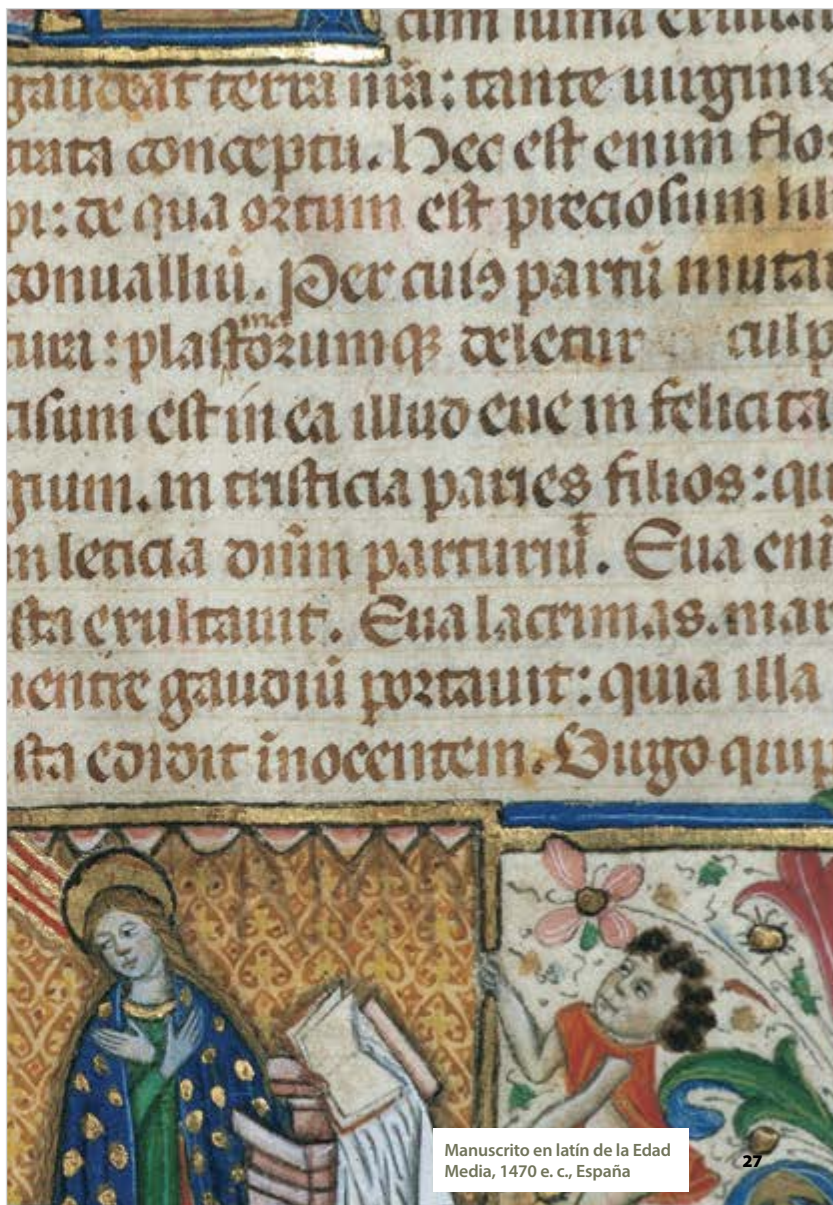 gaudeat terra nr̃a: tante uirginis
trata conceptu. Hec est enim flo
pi: de qua ortum est preciosum lili
conualliũ. Per cuiꝰ partũ mutat
tura: plastorumqꝫ deletur culp
ma
cisum est in ea illud eue in felicita
gium. in tristicia paries filios: qu
in leticia dñm parturiũ. Eua eni
sta exultauit. Eua lacrimas. mar
uentre gaudiũ portauit: quia illa
sta edidit ĩnocentem. Uirgo quip
Manuscrito en latín de la Edad
Media, 1470 e. c., España
27